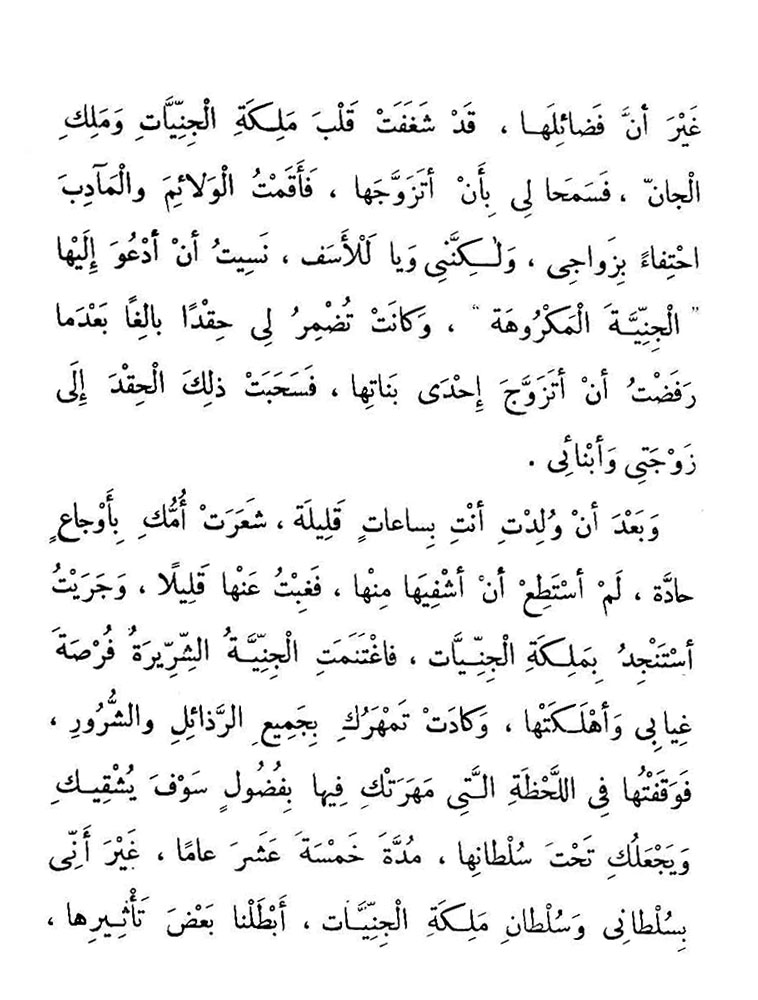 غَيْرَ أنَّ فَضائِلَها ، قَدْ شَغَفَتْ قَلْبَ مَلِكَةِ الْجِنِّيَّاتِ وَمَلِكِ
الْجانّ ، فَسَمَحا لِى بِأَنْ أتَزَوَّجَها ، فَأَقَمْتُ الْوَلائِمَ والْمَآدِبَ
احْتِفاءً بِزَواجِى ، وَلٰكِنَّنِى وَيا لَلْأَسَف ، نَسِيتُ أنْ أدْعُوَ إلَيْها
" الْجِنِّيَّةَ الْمَكْرُوهَة " ، وَكانَتْ تُضْمِرُ لِى حِقْدًا بالِغًا بَعْدَما
رَفَضْتُ أنْ أتَزَوَّجَ إحْدَى بَناتِها ، فَسَحَبَتْ ذلِكَ الْحِقْدَ إلَى
زَوْجَتِى وَأبْنائِى .
وَبَعْدَ أنْ وُلِدْتِ أنْتِ بِساعاتٍ قَلِيلَة ، شَعَرَتْ أُمُّكِ بِأَوْجاعٍ
حادَّة ، لَمْ أسْتَطِعْ أنْ أشْفِيَها مِنْها ، فَغِبْتُ عَنْها قَلِيلًا ، وَجَرَيْتُ
أسْتَنْجِدُ بِمَلِكَةِ الْجِنِّيَّات ، فاغْتَنَمَتِ الْجِنِّيَّةُ الشِّرِّيرَةُ فُرْصَةَ
غِيابِى وَأهْلَكَتْها ، وَكادَتْ تَمْهَرُكِ بِجَمِيعِ الرَّذائِلِ والشُّرُورِ ،
فَوَقَفْتُها فِى اللَّحْظَةِ الَّتِى مَهَرَتْكِ فِيها بِفُضُولٍ سَوْفَ يُشْقِيكِ
وَيَجْعَلُكِ تَحْتَ سُلْطانِها ، مُدَّةَ خَمْسَةَ عَشَرَ عامًا ، غَيْرَ أَنِّى
بِسُلْطانِى وَسُلْطانِ مَلِكَةِ الْجِنِّيَّات ، أبْطَلْنا بَعْضَ تَأْثِيرِها ،